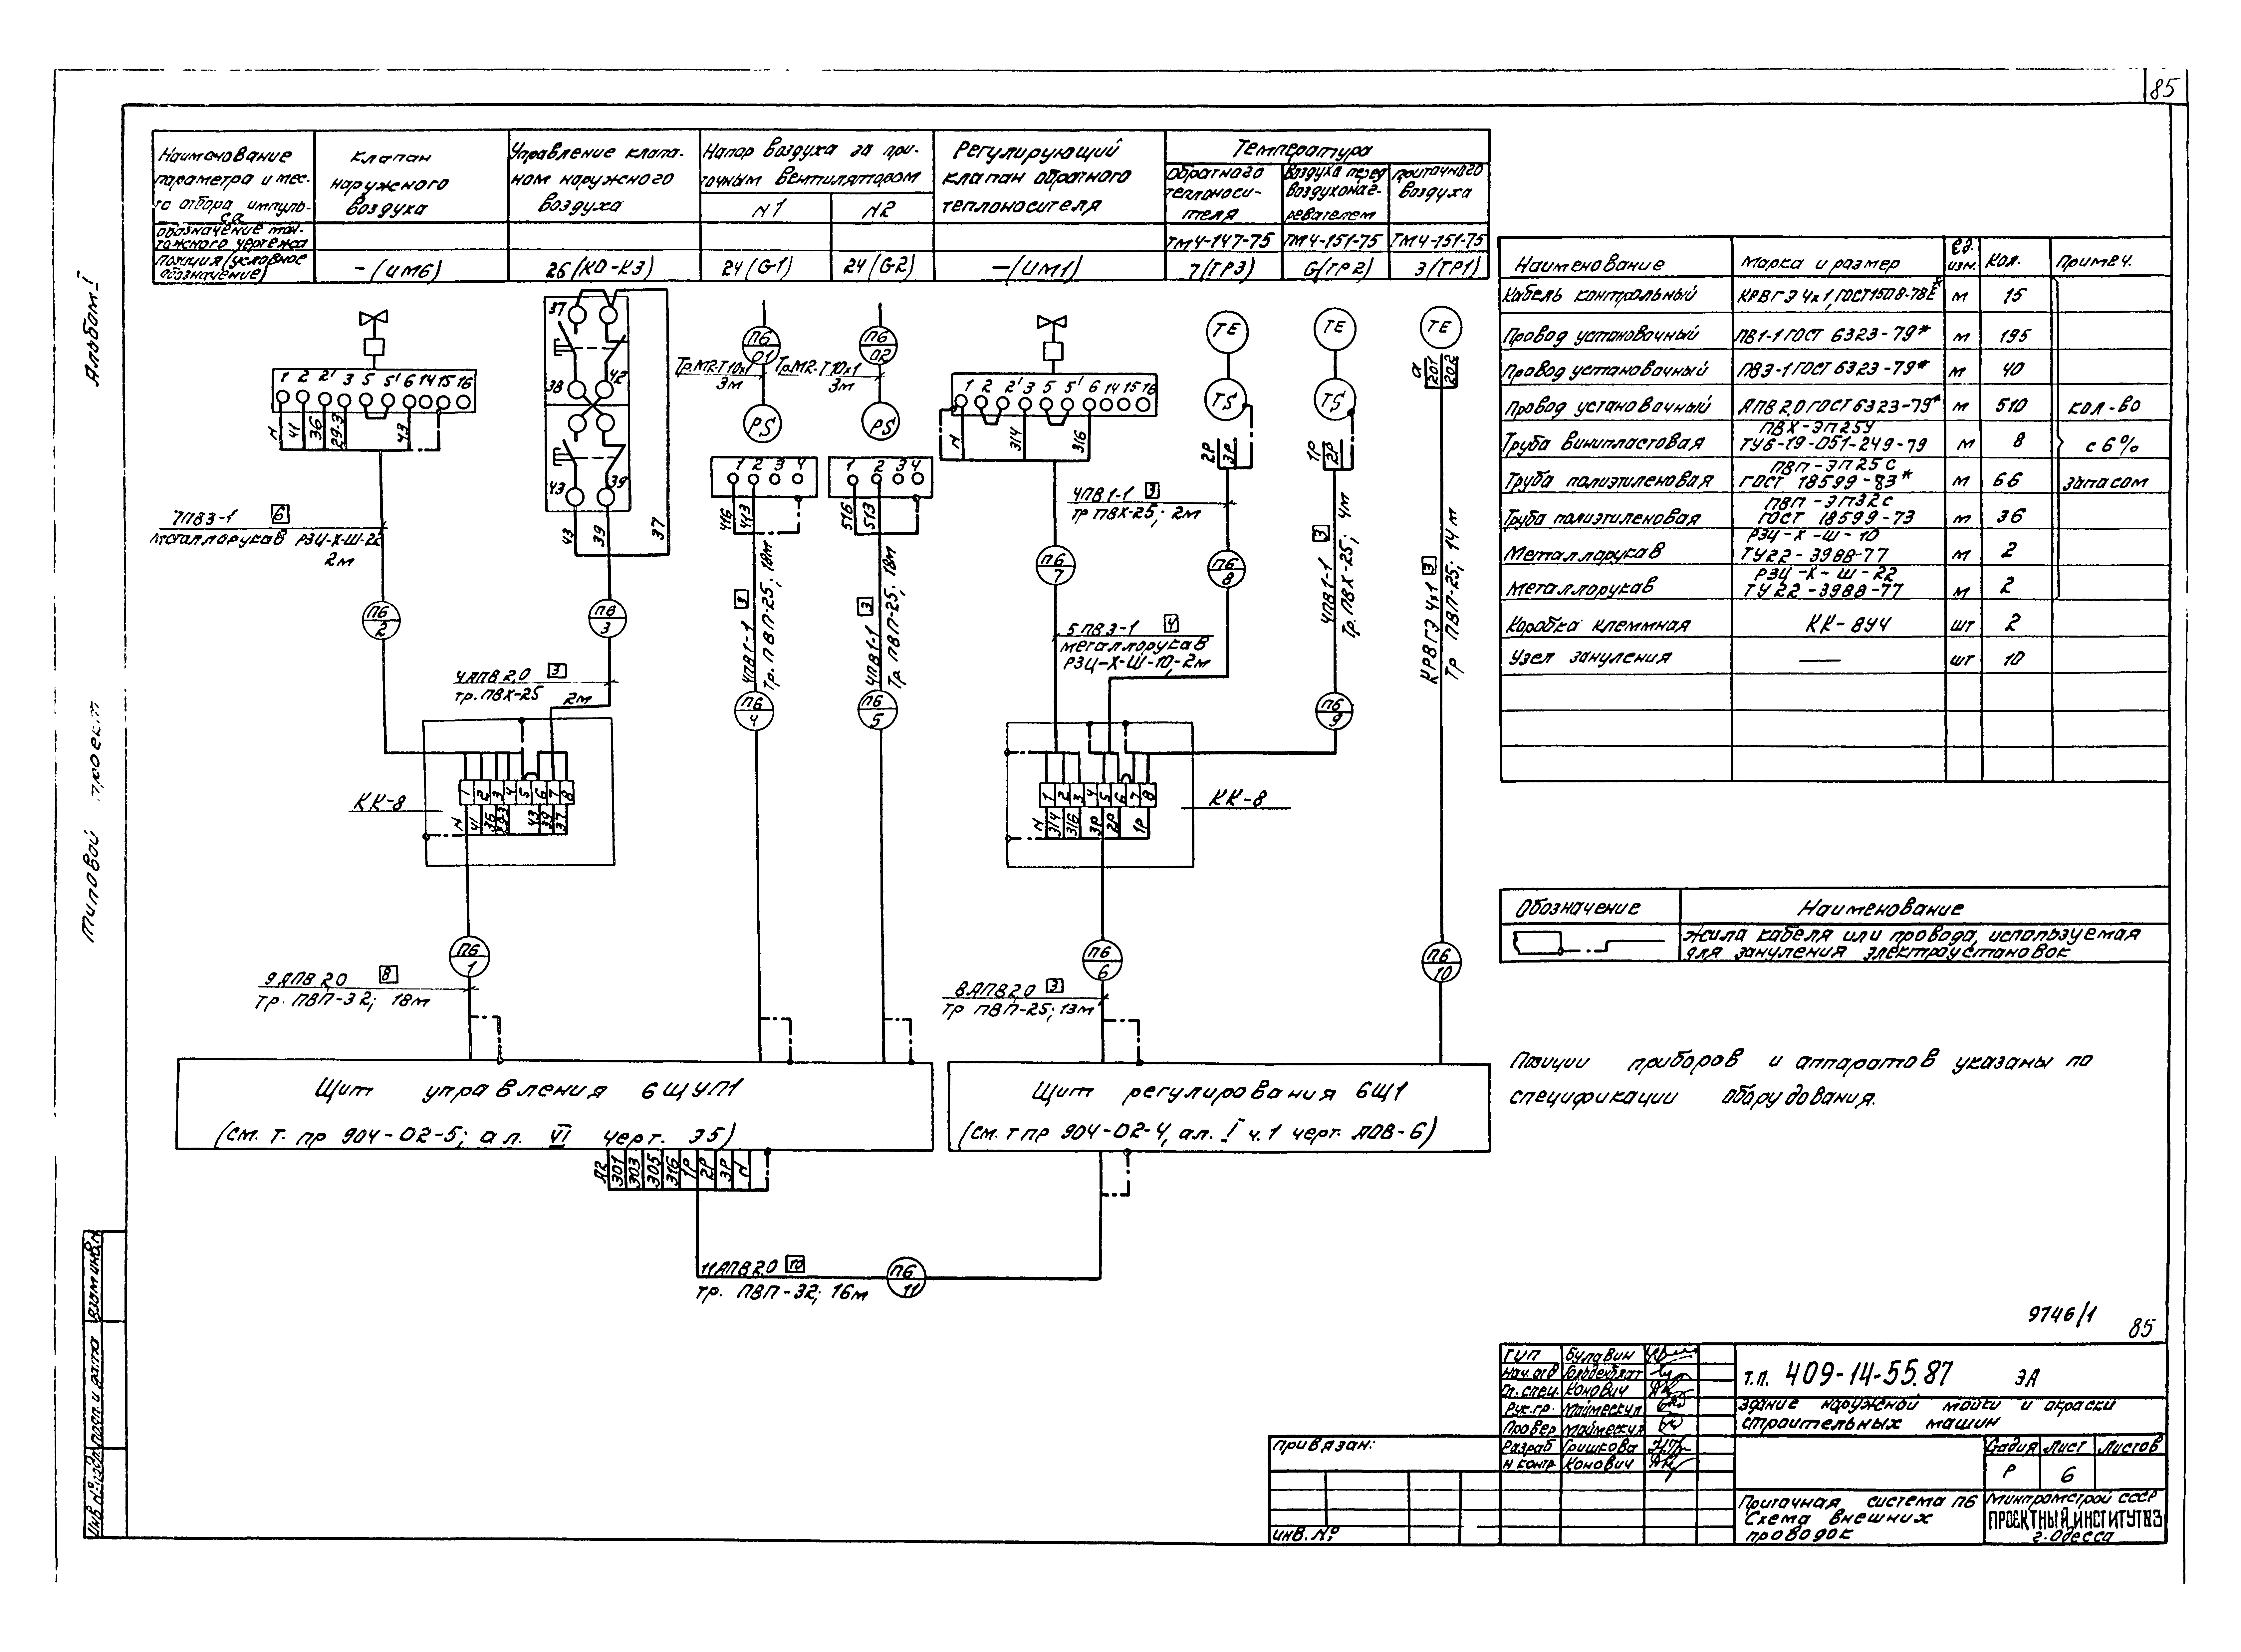 85
Альбом I
Типовой проект
Наименование параметра и мес-
та отбора импуль-
са
Клапан
наружного
воздуха
Управление клапа-
ном наружного
воздуха
Напор воздуха за при-
точным вентилятором
N1
N2
Регулирующий
клапан обратного
теплоносителя
Температура
обратного
теплоноси-
теля
воздуха перед
воздухонаг-
ревателем
приточного
воздуха
Обозначение мон-
тажного чертежа
ТМ4-147-75
ТМ4-151-75
ТМ4-151-75
Позиция (условное
обозначение)
-(ИМ6)
26(КО-КЗ)
24(G-1)
24(G2)
-(ИМ1)
7(ТР3)
6(ТР2)
3(ТР1)
1 2 2' 3 5 5' 6 14 15 16
N 41 36 29-3 43
7ПВ3-1 6
металлорукав РЗЦ-Х-Ш-22
2м
П6
2
37
38 42
43 39
43 39 37
П6
3
4АПВ2,0 3
тр. ПВХ-25 2м
П6
01
Тр.М2-Т10х1
3м
PS
1 2 3 4
416 413
4ПВ1-1 3
Тр. ПВП-25; 18м
П6
4
П6
02
Тр.М2-Т10х1
3м
PS
1 2 3 4
516 513
4ПВ1-1 3
Тр ПВП-25; 18м
П6
5
1 2 2' 3 5 5' 6 14 15 16
N 314 316
П6
7
5ПВ3-1 4
металлорукав
РЗЦ-Х-Ш-10,-2м
TE
TS
2Р 3Р
4ПВ1-1 3
Тр ПВХ-25; 2м
П6
8
TE
TS
1Р 2Р
4ПВ1-1 3
Тр. ПВХ-25; 4м
П6
9
TE
а 201 202
КРВГЭ 4х1 3
Тр ПВП-25; 14м
КК-8
1 2 3 4 5 6 7 8
N 41 36 29-3 43 39 37
КК-8
1 2 3 4 5 6 7 8
N 314 316 3Р 2Р 1Р
П6
1
9АПВ2,0 8
Тр. ПВП-32; 18м
П6
6
8АПВ2,0 3
Тр ПВП-25; 13м
П6
10
Щит управления 6ЩУП1
(см. т. пр 904-02-5; ал. VI черт. Э5)
Щит регулирования 6Щ1
(см. т пр 904-02-4, ал. I ч.1 черт. АОВ-6)
А2 301 303 305 316 1Р 2Р 3Р N
11АПВ2,0 10
Тр. ПВП-32; 16м
П6
11
Наименование Марка и размер Ед. изм. Кол. Примеч.
Кабель контрольный КРВГЭ 4х1, ГОСТ1508-78Е* м 15
Провод установочный ПВ1-1 ГОСТ 6323-79* м 195
Провод установочный ПВ3-1 ГОСТ 6323-79* м 40
Провод установочный АПВ 2,0 ГОСТ 6323-79* м 510 кол-во
Труба винипластовая ПВХ-ЭП25У
ТУ6-19-051-249-79 м 8 с 6%
Труба полиэтиленовая ПВП-ЭП25С
ГОСТ 18599-83* м 66 запасом
Труба полиэтиленовая ПВП-ЭП32С
ГОСТ 18599-73 м 36
Металлорукав РЗЦ-Х-Ш-10
ТУ22-3988-77 м 2
Металлорукав РЗЦ-Х-Ш-22
ТУ22-3988-77 м 2
Коробка клеммная КК-8У4 шт 2
Узел зануления — шт 10
Обозначение Наименование
Жила кабеля или провода, используемая
для зануления электроустановок
Позиции приборов и аппаратов указаны по
спецификации оборудования.
9746/1
85
ГИП Булавин
Нач. отд Гольденблат
Гл. спец. Конович
Рук. гр. Маймескул
Провер Маймескул
Разраб Гришкова
Н контр. Конович
Т.П. 409-14-55.87 ЭА
Здание наружной мойки и окраски
строительных машин
Стадия Лист Листов
Р 6
Приточная система П6
Схема внешних
проводок
Минпромстрой СССР
ПРОЕКТНЫЙ ИНСТИТУТ №3
г. Одесса
Привязан:
Инв. №
Взам инв. №
Подп. и дата
Инв № подл.